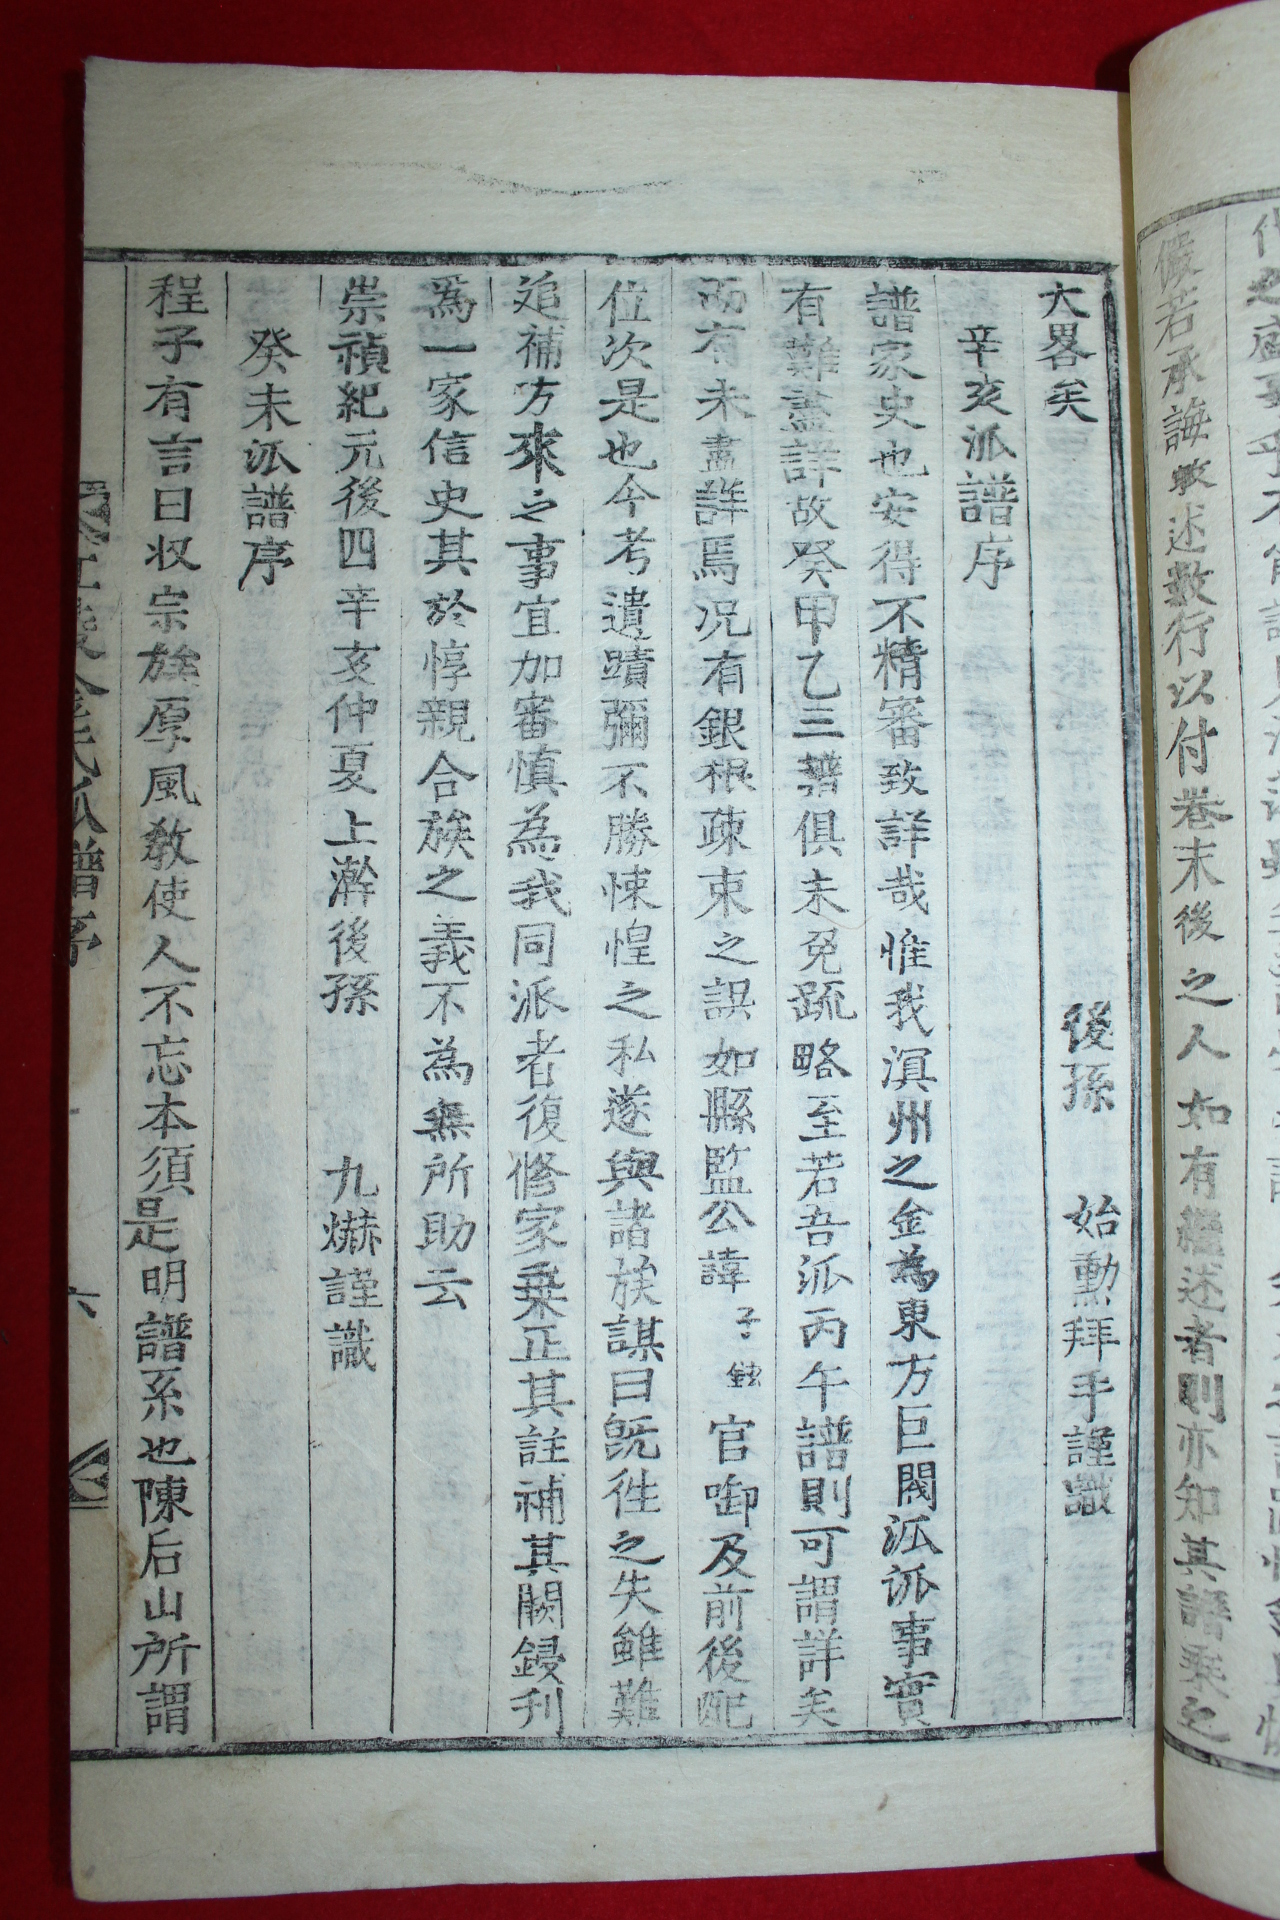 儼若承誨敢述數行以付卷末後之人如有繼述者則亦知其譜乘之
大畧矣
後孫 始勳拜手謹識
辛亥派譜序
譜家史也安得不精審致詳哉惟我溟州之金為東方巨閥派派事實
有難盡詳故癸甲乙三譜俱未免疏略至若吾派丙午譜則可謂詳矣
而有未盡詳焉况有銀根疎束之誤如縣監公諱子鉉官啣及前後配
位次是也今考遺蹟彌不勝悚惶之私遂與諸族謀曰旣徃之失雖難
追補方來之事宜加審慎為我同派者復修家乗正其註補其闕鋟刋
為一家信史其於惇親合族之義不為無所助云
崇禎紀元後四辛亥仲夏上澣後孫 九爀謹識
癸未派譜序
程子有言曰収宗族厚風敎使人不忘本須是明譜系也陳后山所謂
金氏派譜序
六